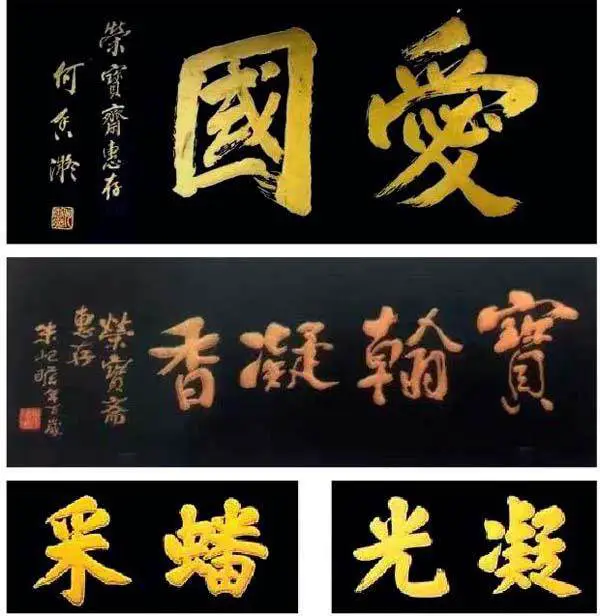 愛國
榮寶齋惠存
何香凝
寶翰凝香
榮寶斋
惠存
朱屺瞻年百歲
凝光
蟠采